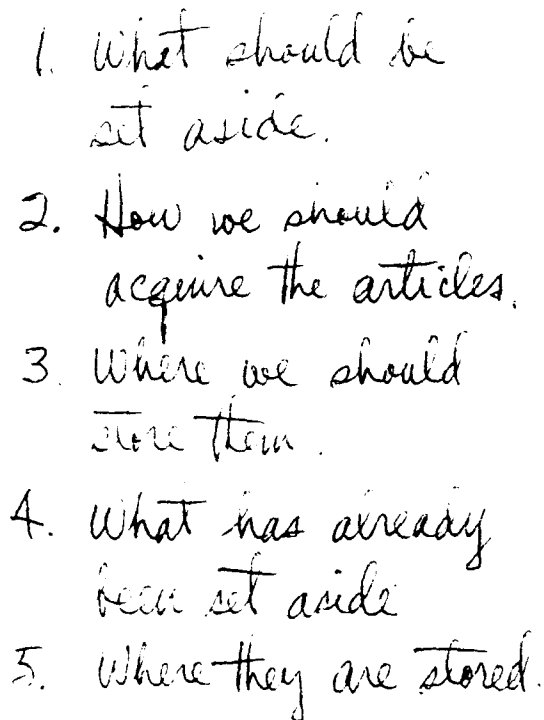 1. What should be
set aside.
2. How we should
acquire the articles.
3. Where we should
store them.
4. What has already
been set aside
5. Where they are stored.